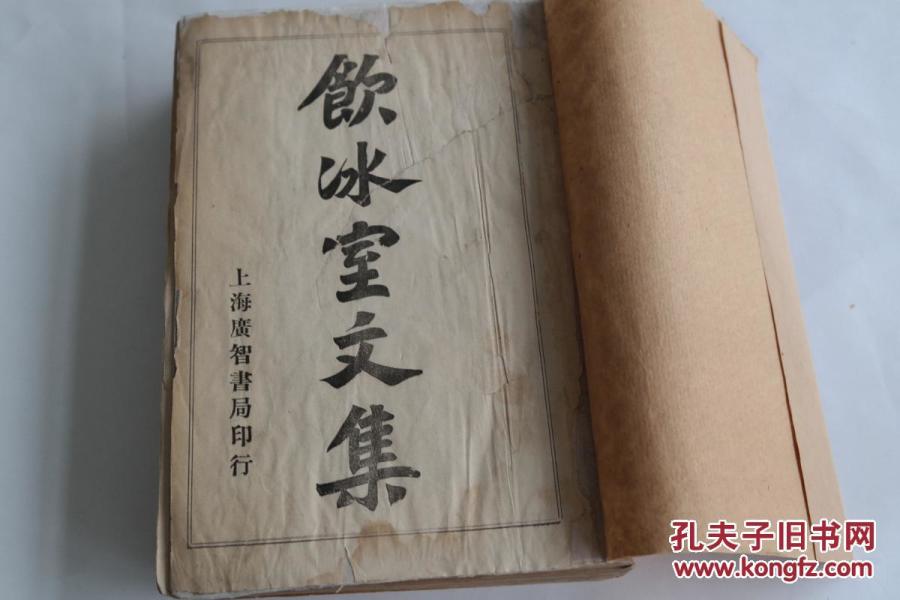 飲冰室文集
上海廣智書局印行
孔夫子旧书网
www.kongfz.com